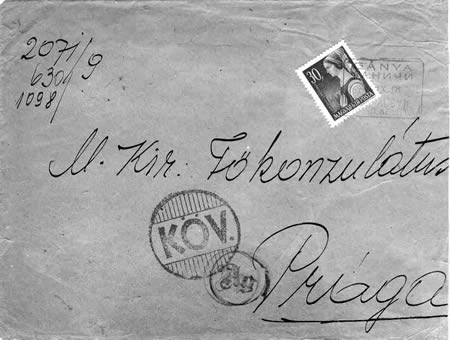 2071/9
6301
1098
30
MAGYARORSZÁG
BÁNYA
M. Kir. Főkonzulátus
KÖV.
Prága